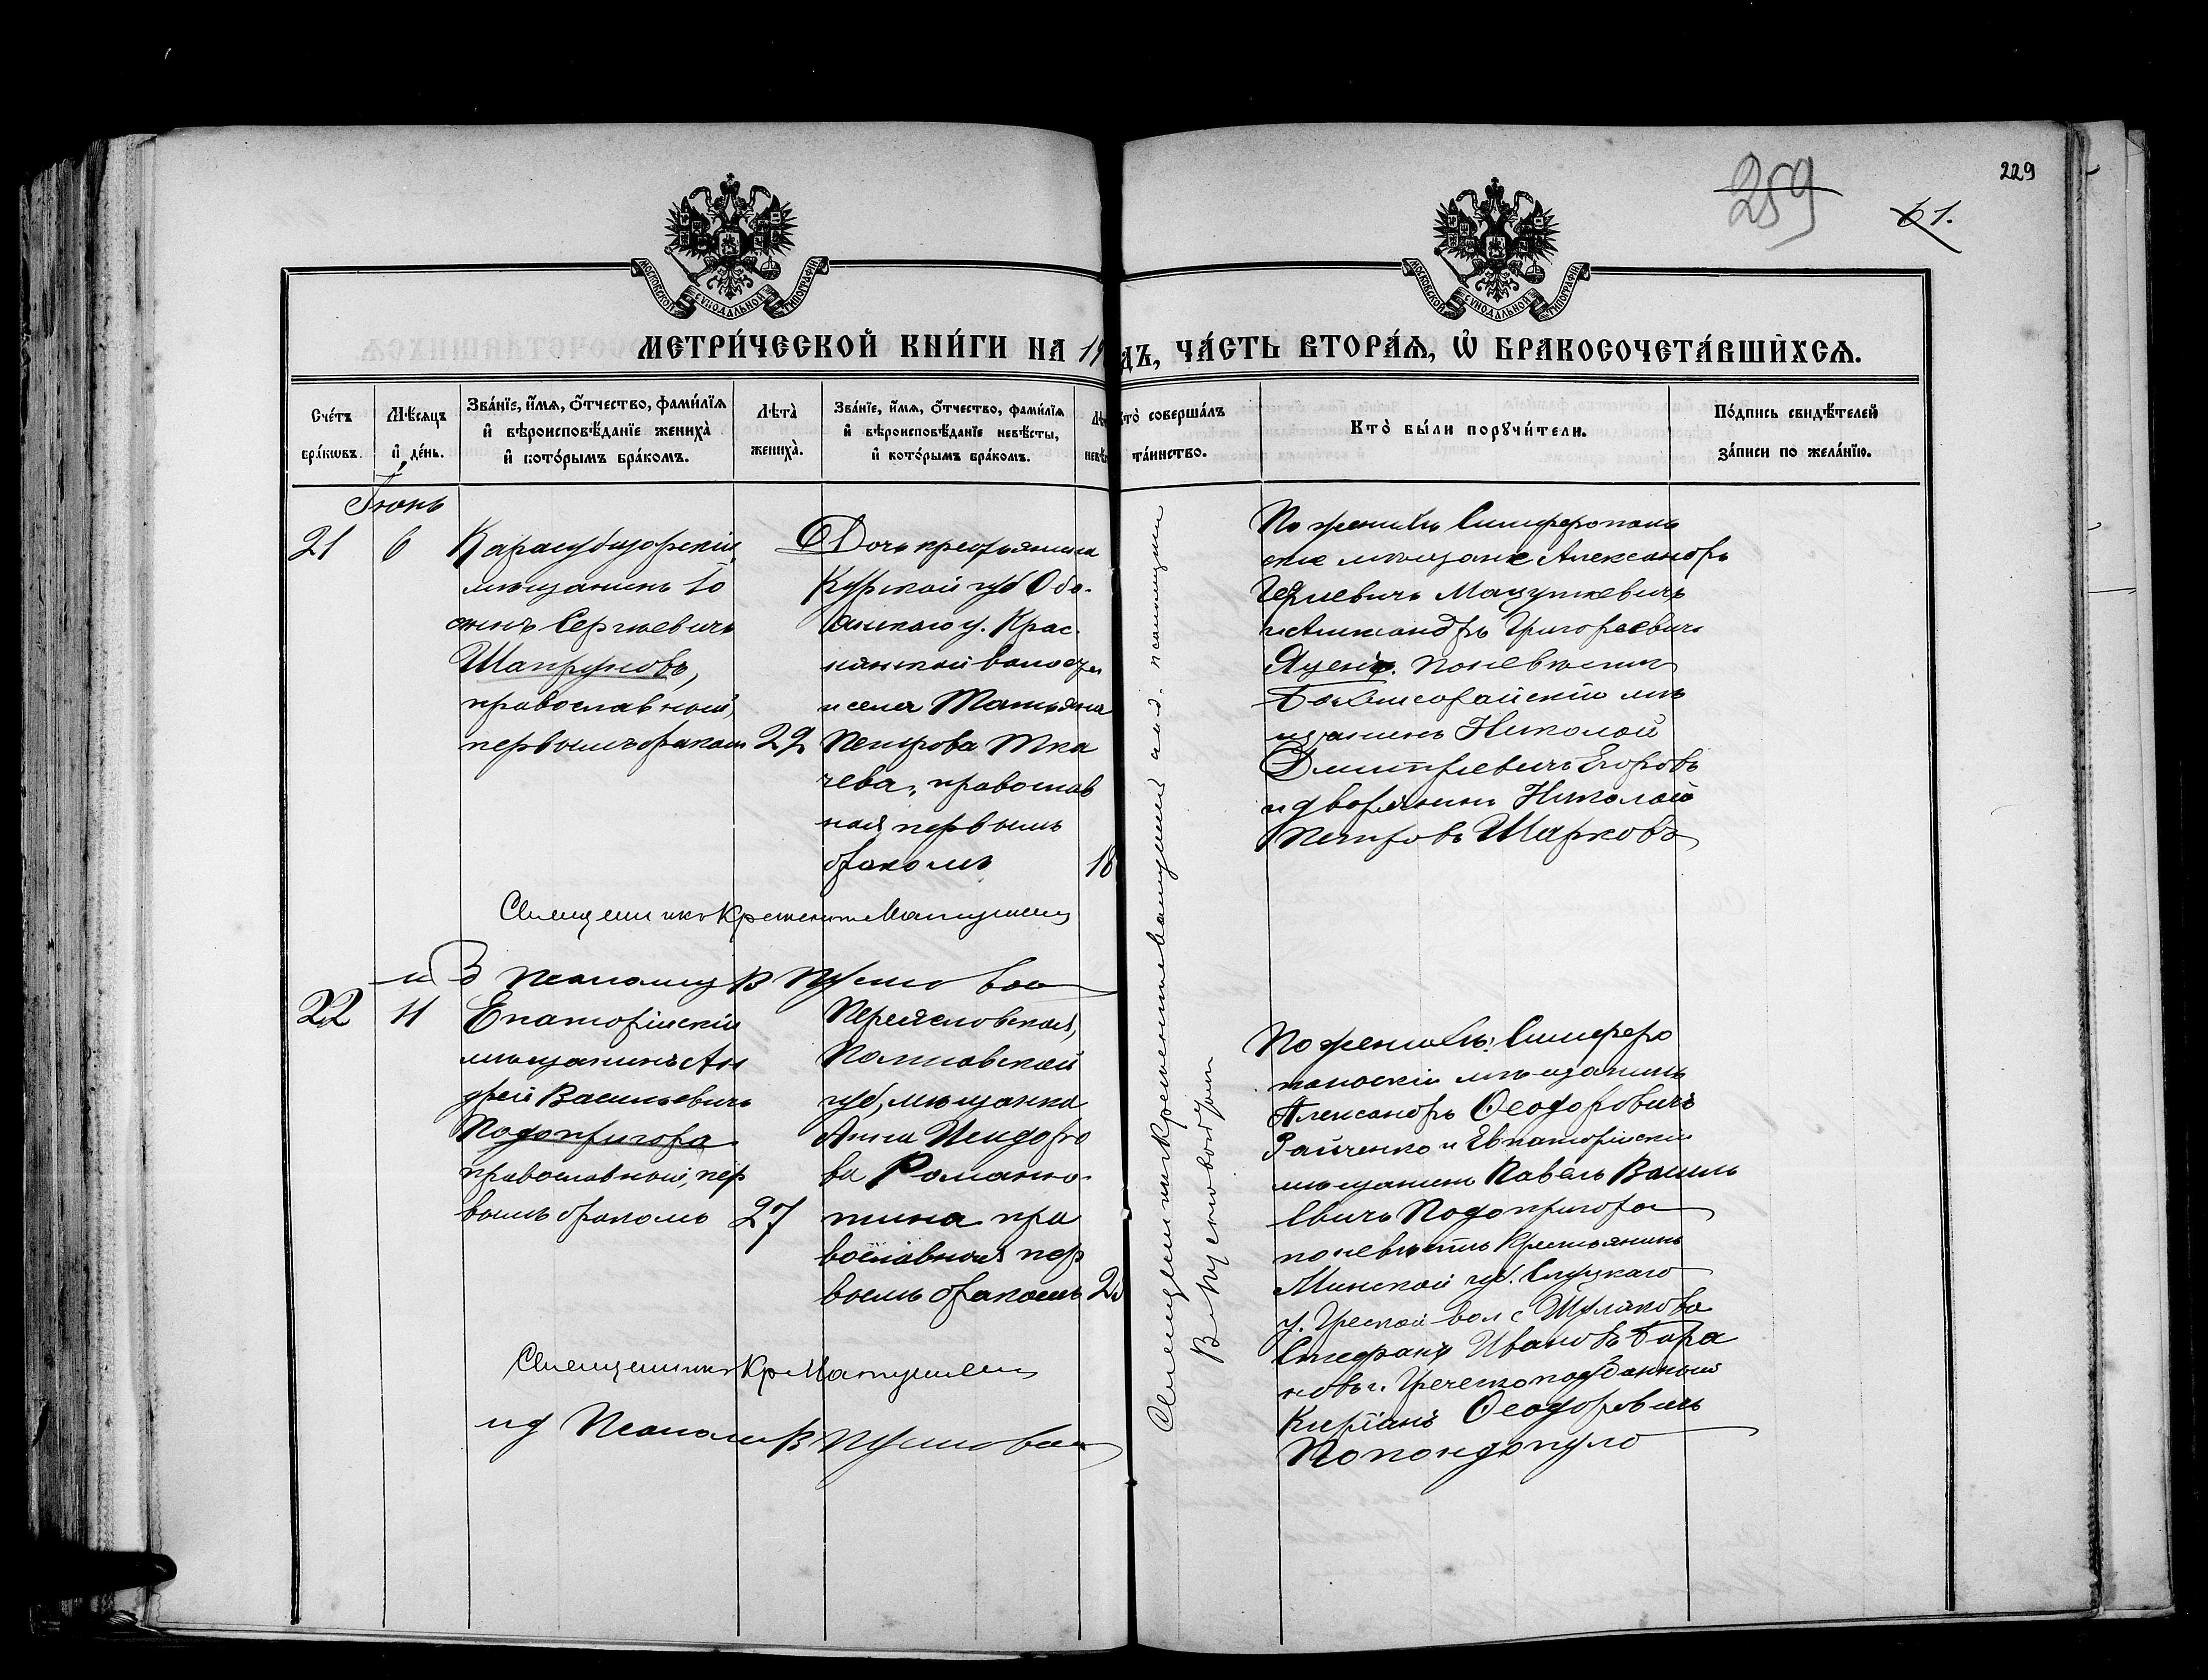 229
259
61.
МОСКОВСКОЙ СѴНОДАЛЬНОЙ ТИПОГРАФІИ
МОСКОВСКОЙ СѴНОДАЛЬНОЙ ТИПОГРАФІИ
МЕТРИ́ЧЕСКОЙ КНИ́ГИ НА 19
ДЪ, ЧА́СТЬ ВТОРА́Ѧ, Ѡ҆ БРАКОСОЧЕТА́ВШИХСѦ.
Сче́тъ бра́кѡвъ.
Мѣ́сяцъ и҆ де́нь.
Зва́нїе, и҆́мѧ, ѻ҆́тчество, фами́лїѧ
и҆ вѣроисповѣ́данїе жениха̀
и҆ кото́рымъ бра́комъ.
Лѣта̀ жениха̀.
Зва́нїе, и҆́мѧ, ѻ҆́тчество, фами́лїѧ
и҆ вѣроисповѣ́данїе невѣ́сты,
и҆ кото́рымъ бра́комъ.
Кто̀ соверша́лъ
та́инство.
Кто̀ бы́ли порꙋчи́тели.
По́дпись свидѣ́телей
за́писи по жела́нїю.
Іюнь
21
6
Карасубазарскій
мѣщанинъ Іо
сифъ Сергѣевичъ
православный,
первымъ бракомъ
22
Дочь крестьянина
Курской губ Обо-
янскаго у. Крас-
нянской волости
и села Татьяна
Петрова Тка
чева, православ
ная первымъ
бракомъ
18
Священникъ
Псаломщ В Пустовой
По женихѣ Симферополь
скіе мѣщане Александръ
и Александръ Григорьевичъ
по невѣстѣ
Бахчисарайскій мѣ
щанинъ Николай
Дмитріевичъ Егоровъ
и дворянинъ Николай
Петровъ Шарковъ
22
11
Евпаторійскій
мѣщанинъ Ан
дрей Васильевичъ
Подопригора
православный, пер
вымъ бракомъ
27
Переяславская,
Полтавской
губ, мѣщанка
Анна Исидоро
ва
православная пер
вымъ бракомъ
Священникъ Кр
Псалом В Пустовой
По женихѣ: Симферо
польскій мѣщанинъ
Александръ Ѳеодоровичъ
Зайченко и Евпаторійскій
мѣщанинъ Павелъ Василь
евичъ Подопригора
по невѣстѣ крестьянинъ
Минской губ. Слуцкаго
у. Греской вол с
Стефанъ Ивановъ Бара
новъ и Греческоподданный
Киріакъ Ѳеодоровичъ
Попондопуло
Священникъ
В. Пустовойтъ